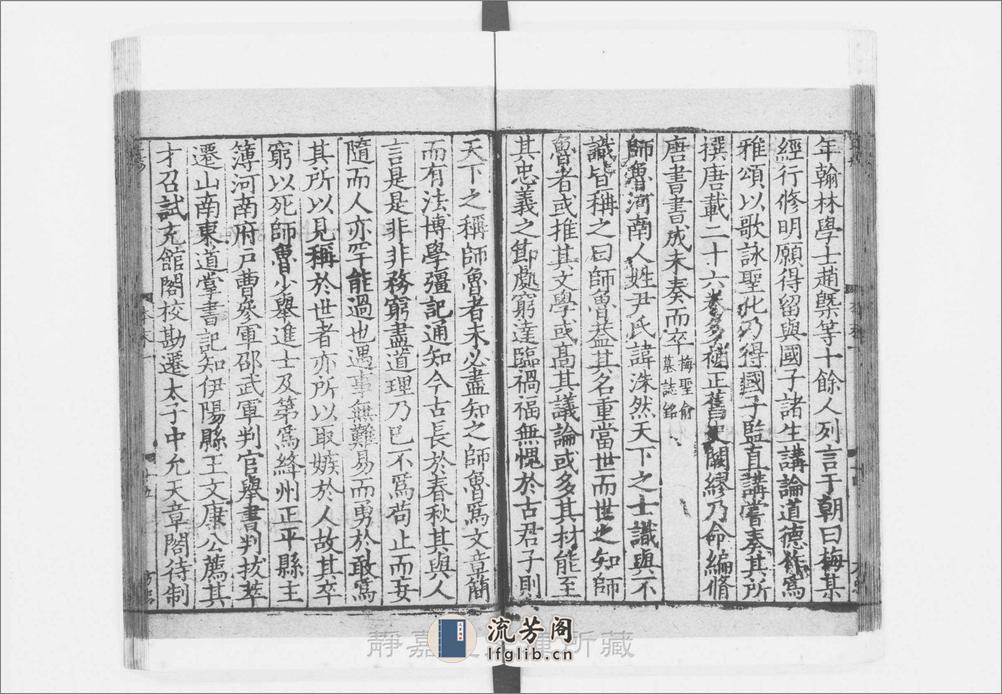 年翰林學士趙槩等十餘人列言于朝曰梅某
經行修明願得留與國子諸生講論道德作爲
雅頌以歌詠聖化乃得國子監直講嘗奏其所
撰唐載二十六卷多補正舊史闕繆乃命編脩
唐書書成未奏而卒梅聖俞墓誌銘
師魯河南人姓尹氏諱洙然天下之士識與不
識皆稱之曰師魯葢其名重當世而世之知師
魯者或推其文學或高其議論或多其材能至
其忠義之節處窮達臨禍福無愧於古君子則
天下之稱師魯者未必盡知之師魯爲文章簡
而有法博學彊記通知今古長於春秋其與人
言是是非非務窮盡道理乃已不爲苟止而妄
隨而人亦罕能過也遇事無難易而勇於敢爲
其所以見稱於世者亦所以取嫉於人故其卒
窮以死師魯少舉進士及第爲絳州正平縣主
簿河南府戸曹參軍邵武軍判官舉書判拔萃
遷山南東道掌書記知伊陽縣王文康公薦其
才召試充館閣校勘遷太子中允天章閣待制
靜嘉 所藏
流芳阁
lfglib.cn